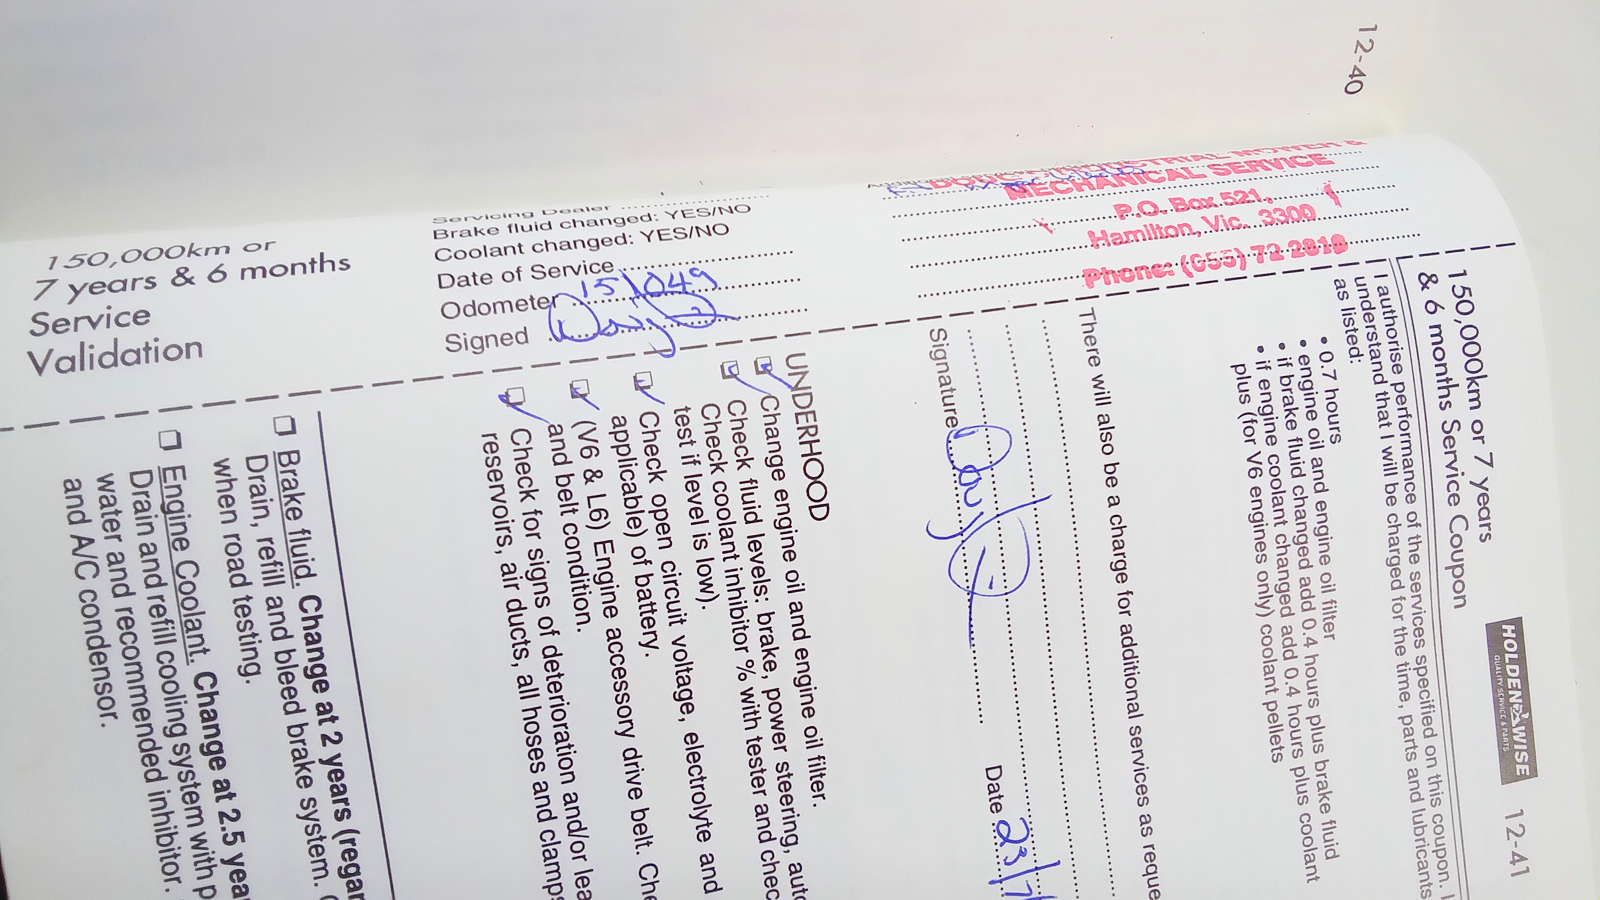 12-40
150,000km or
7 years & 6 months
Service
Validation
Servicing Dealer
Brake fluid changed: YES/NO
Coolant changed: YES/NO
Date of Service
Odometer 151049
Signed
MECHANICAL SERVICE
P.O. Box 521,
Hamilton, Vic. 3300
Phone: (055) 72 2819
HOLDEN WISE
QUALITY SERVICE & PARTS
12-41
150,000km or 7 years
& 6 months Service Coupon
I authorise performance of the services specified on this coupon. I
understand that I will be charged for the time, parts and lubricants
as listed:
• 0.7 hours
• engine oil and engine oil filter
• if brake fluid changed add 0.4 hours plus brake fluid
• if engine coolant changed add 0.4 hours plus coolant
plus (for V6 engines only) coolant pellets
There will also be a charge for additional services as reque
Signature
Date 23/7
UNDERHOOD
Change engine oil and engine oil filter.
Check fluid levels: brake, power steering, auto
Check coolant inhibitor % with tester and chec
test if level is low).
Check open circuit voltage, electrolyte and
applicable) of battery.
(V6 & L6) Engine accessory drive belt. Che
and belt condition.
Check for signs of deterioration and/or lea
reservoirs, air ducts, all hoses and clamps
Brake fluid. Change at 2 years (regar
Drain, refill and bleed brake system. (
when road testing.
Engine Coolant. Change at 2.5 yea
Drain and refill cooling system with p
water and recommended inhibitor.
and A/C condensor.